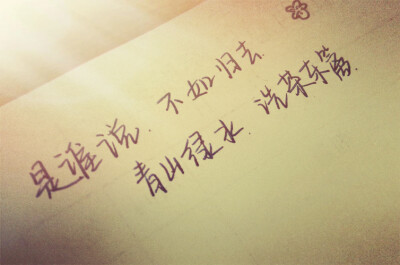 是谁说.不如归去.
青山绿水.洗茶东篱.